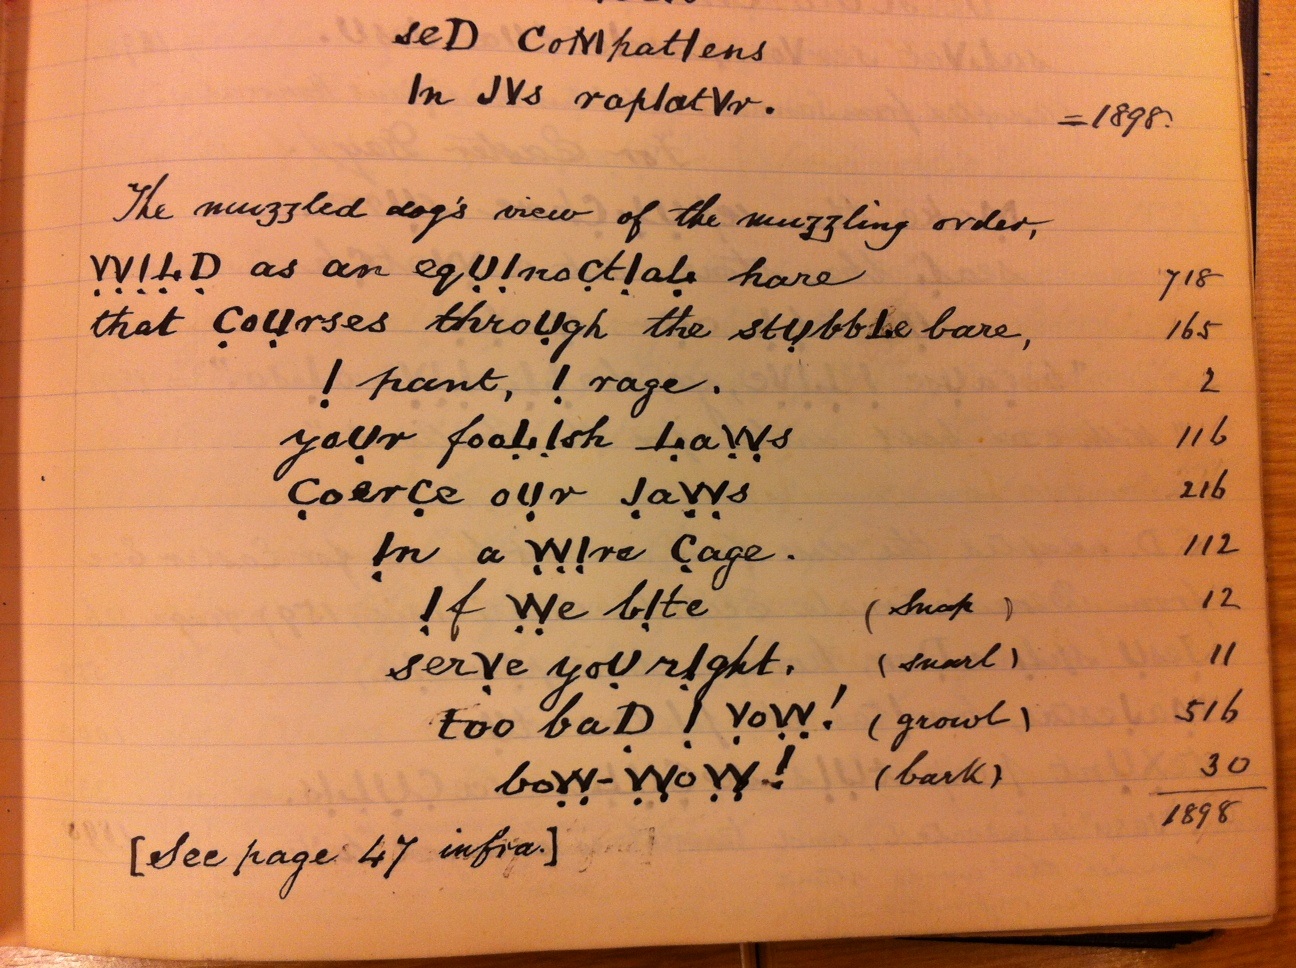 seD CoMpatIens
In JVs rapIatVr.
=1898.
The muzzled dog's view of the muzzling order,
WILD as an eqUInoCtIaL hare 718
that CoUrses throUgh the stUbbLe bare, 165
I pant, I rage. 2
yoUr fooLIsh LaWs 116
CoerCe oUr JaWs 216
In a WIre Cage. 112
If We bIte (Snap) 12
serVe yoU rIght. (snarl) 11
too baD I VoW! (growl) 516
boW-WoW! (bark) 30
1898
[See page 47 infra.]